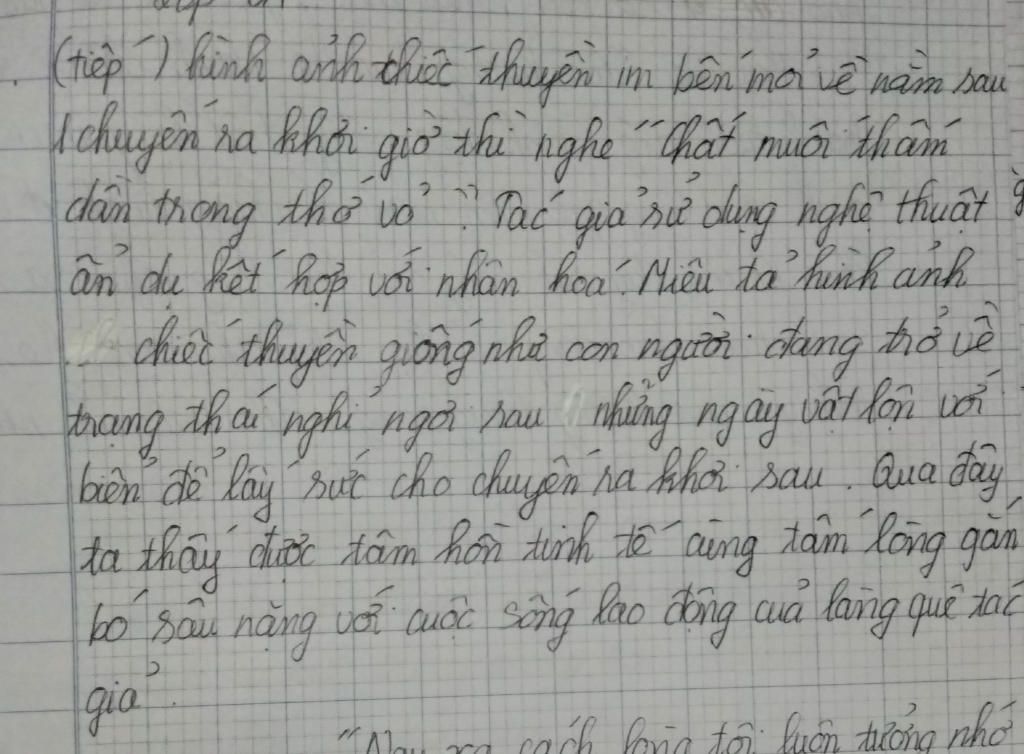 (tiếp) hình ảnh chiếc thuyền im bến mỏi về nằm sau
1 chuyến ra khơi giờ thì nghe "Chất muối thấm
dần trong thớ vỏ". Tác giả sử dụng nghệ thuật
ẩn dụ kết hợp với nhân hoá. Miêu tả hình ảnh
chiếc thuyền giống như con người đang trở về
trạng thái nghỉ ngơi sau những ngày vật lộn với
biển để lấy sức cho chuyến ra khơi sau. Qua đây
ta thấy được tâm hồn tinh tế cùng tấm lòng gắn
bó sâu nặng với cuộc sống lao động của làng quê tác
giả.
"Nay xa cách lòng tôi luôn tưởng nhớ